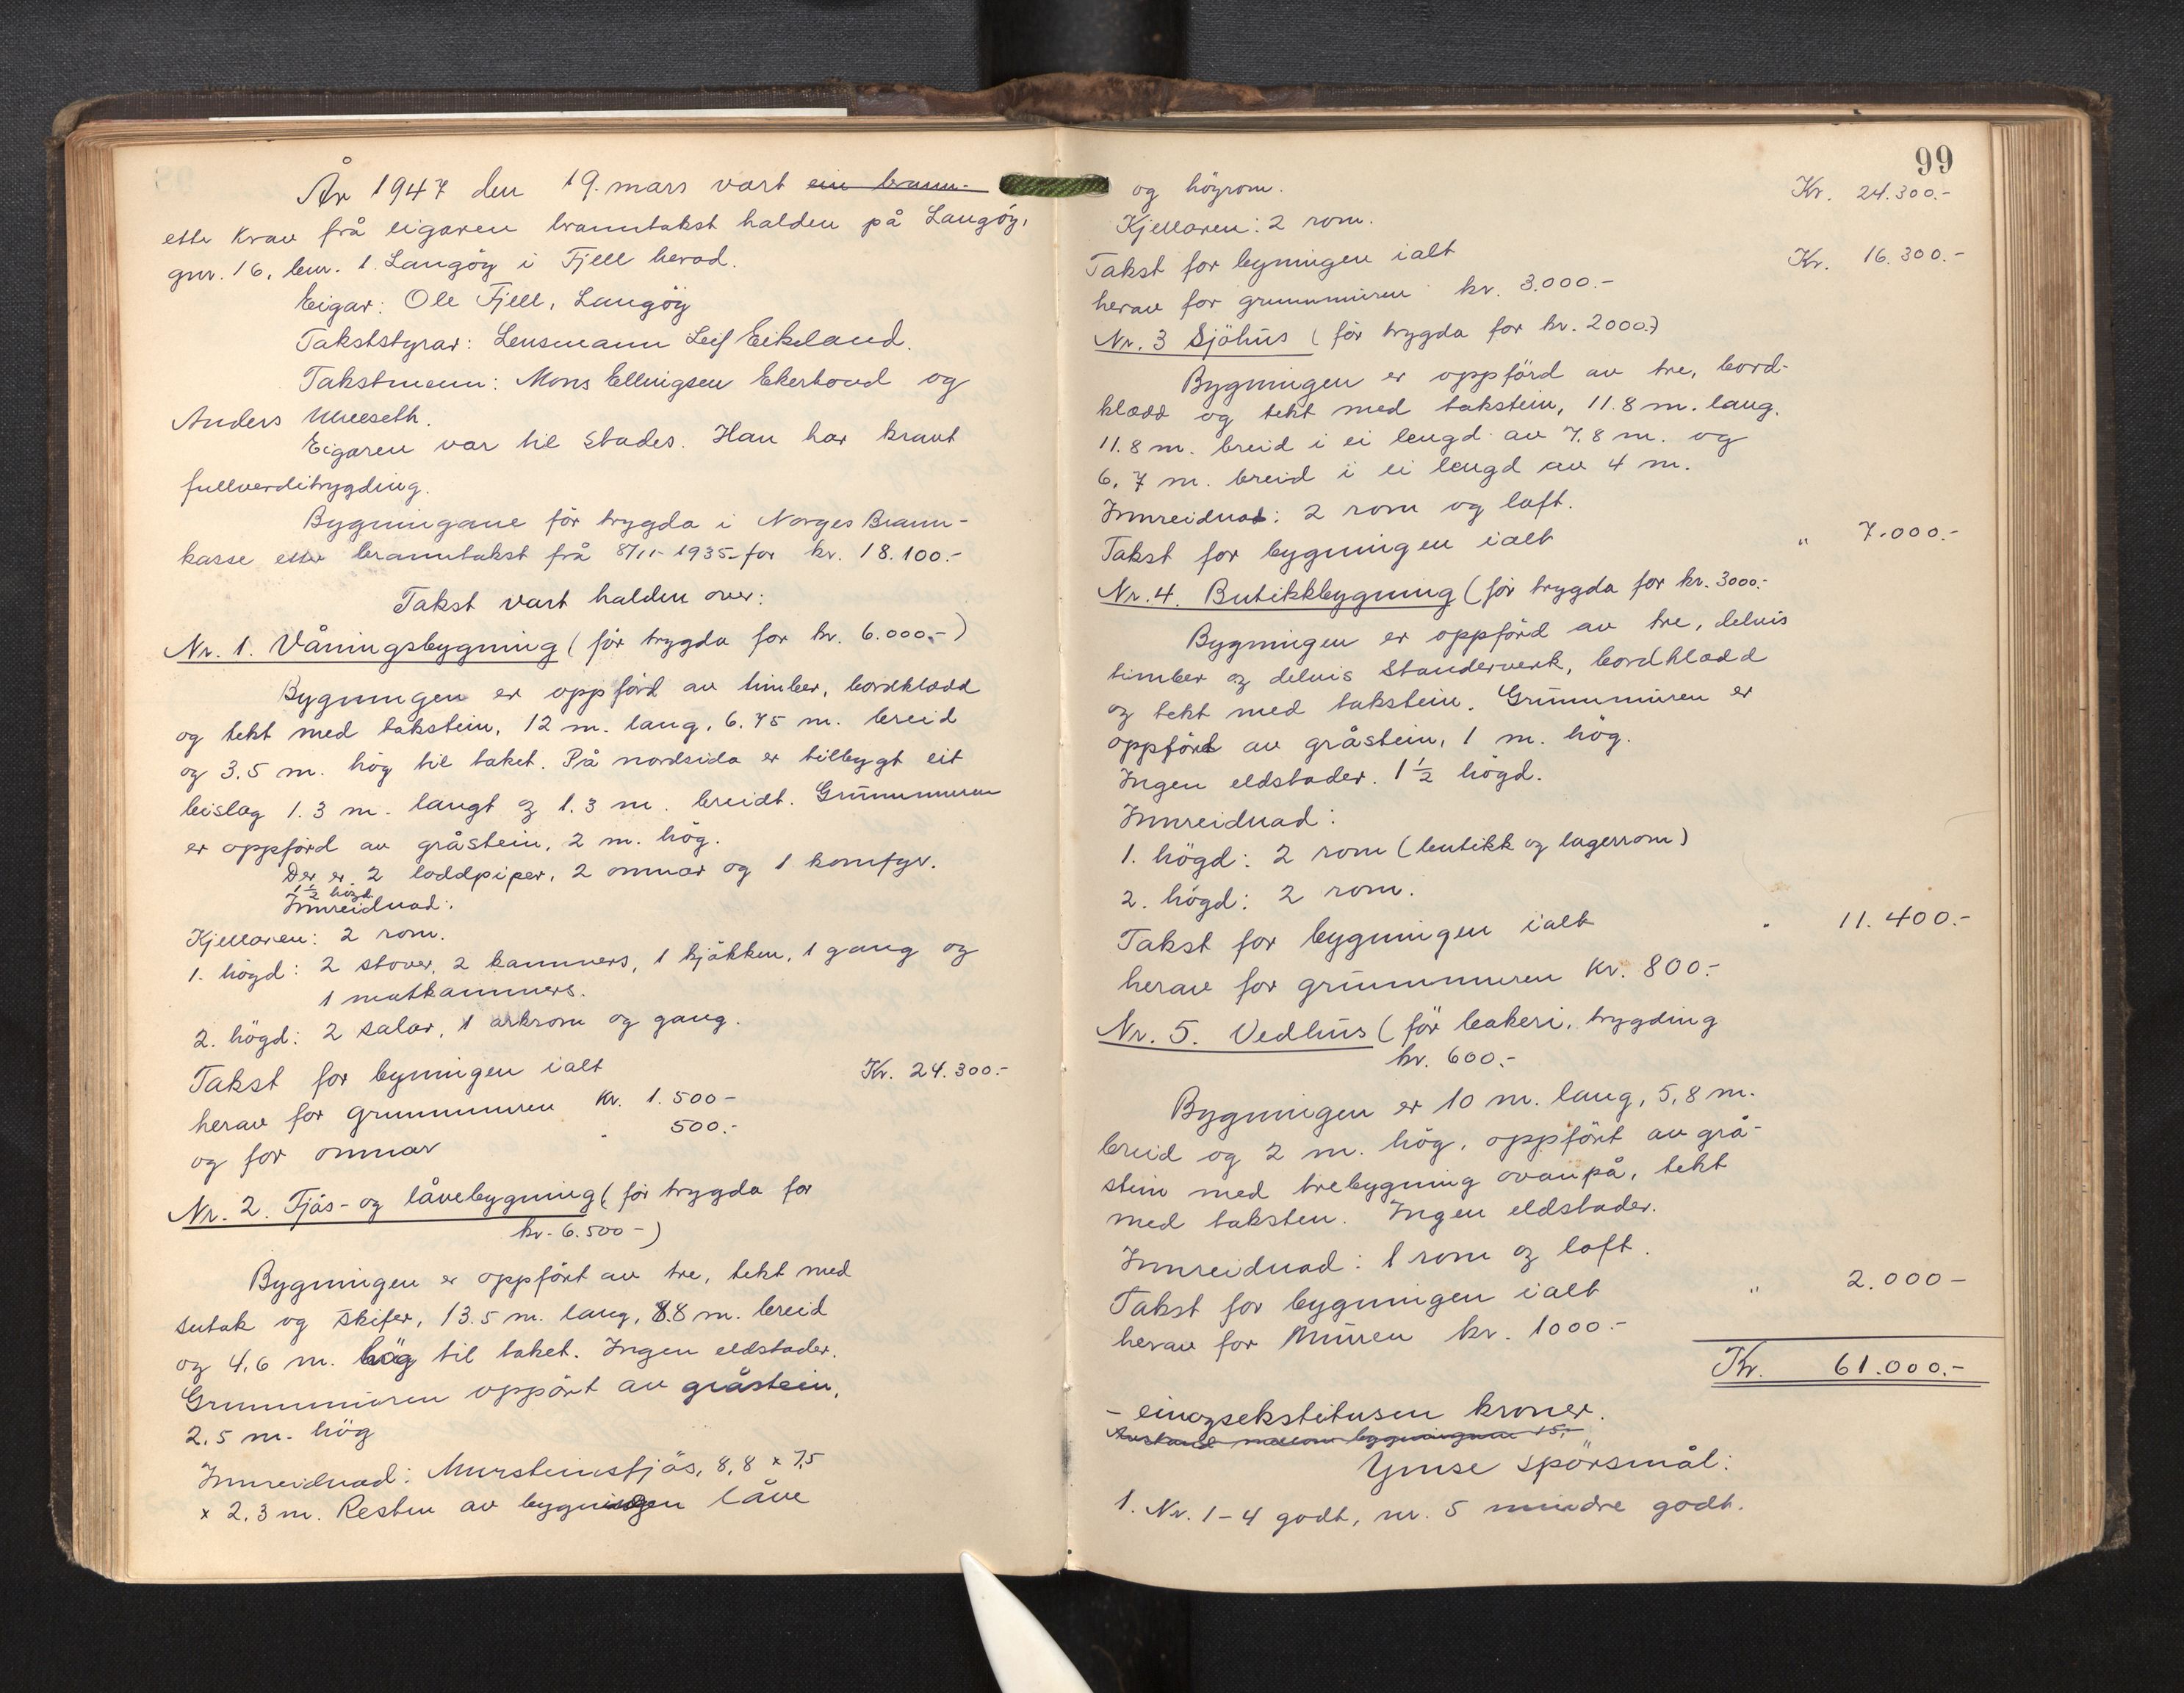 År 1947 den 19. mars vart ein brann-
etter krav frå eigaren branntakst halden på Langöy,
gnr. 16, bnr. 1 Langöy i Fjell herad.
Eigar: Ole Fjell, Langöy
Takststyrar: Lensmann Leif Eikeland.
Takstmenn: Mons Ellingsen Ekerhovd og
Anders Ulveseth.
Eigaren var til stades. Han har kravt
fullverditrygding.
Bygningane för trygda i Norges Brann-
kasse etter branntakst frå 8/11-1935 for kr. 18.100.-
Takst vart halden over:
Nr. 1. Våningsbygning (för trygda for kr. 6.000.-)
Bygningen er oppförd av timber, bordklædd
og tekt med takstein, 12 m. lang, 6.75 m. breid
og 3.5 m. hög til taket. På nordsida er tilbygt eit
beislag 1.3 m. langt og 1.3 m. breidt. Grunnmuren
er oppförd av gråstein, 2 m. hög.
Der er 2 loddpiper, 2 omnar og 1 komfyr.
1½ högd
Innreidnad:
Kjellaren: 2 rom.
1. högd: 2 stover, 2 kammers, 1 kjökken, 1 gang og
1 matkammers.
2. högd: 2 salar, 1 arkrom og gang.
Takst for byningen ialt Kr. 24.300.-
herav for grunnmuren Kr. 1.500-
og for omnar " 500.-
Nr. 2. Fjös- og låvebygning (för trygda for
kr. 6.500-)
Bygningen er oppfört av tre, tekt med
sutak og skifer, 13.5 m. lang, 8.8 m. breid
og 4.6 m. hög til taket. Ingen eldstader.
Grunnmuren oppört av gråstein,
2.5 m. hög
Innreidnad: Mursteinsfjös, 8,8 x 7,5
x 2.3 m. Resten av bygningen låve
99
og höyrom. Kr. 24.300.-
Kjellaren: 2 rom.
Takst for byningen ialt Kr. 16.300.-
herav for grunnmuren kr. 3.000.-
Nr. 3 Sjöhus (för trygda for kr. 2000.-)
Bygningen er oppförd av tre, bord-
klædd og tekt med takstein, 11.8 m. lang.
11.8 m. breid i ei lengd av 7.8 m. og
6,7 m. breid i ei lengd av 4 m.
Innreidnad: 2 rom og loft.
Takst for bygningen ialt " 7.000.-
Nr. 4. Butikkbygning (för trygda for kr. 3000.-
Bygningen er oppförd av tre, delvis
timber og delvis standerverk, bordklædd
og tekt med takstein. Grunnmuren er
oppfört av gråstein, 1 m. hög.
Ingen eldstader. 1½ högd.
Innreidnad:
1. högd: 2 rom (butikk og lagerrom)
2. högd: 2 rom.
Takst for bygningen ialt " 11.400.-
herav for grunnmuren Kr. 800.-
Nr. 5. Vedhus (för bakeri, trygding
kr. 600.-
Bygningen er 10 m. lang, 5,8 m.
breid og 2 m. hög, oppfört av grå-
stein med trebygning ovanpå, tekt
med taksten. Ingen eldstader.
Innreidnad: 1 rom og loft.
Takst for bygningen ialt " 2.000-
herav for Muren kr. 1000.-
Kr. 61.000.-
- einogsekstitusen kroner.
Avstand mellom bygningane 15,-
Ymse spörsmål:
1. Nr. 1-4 godt, nr. 5 mindre godt.